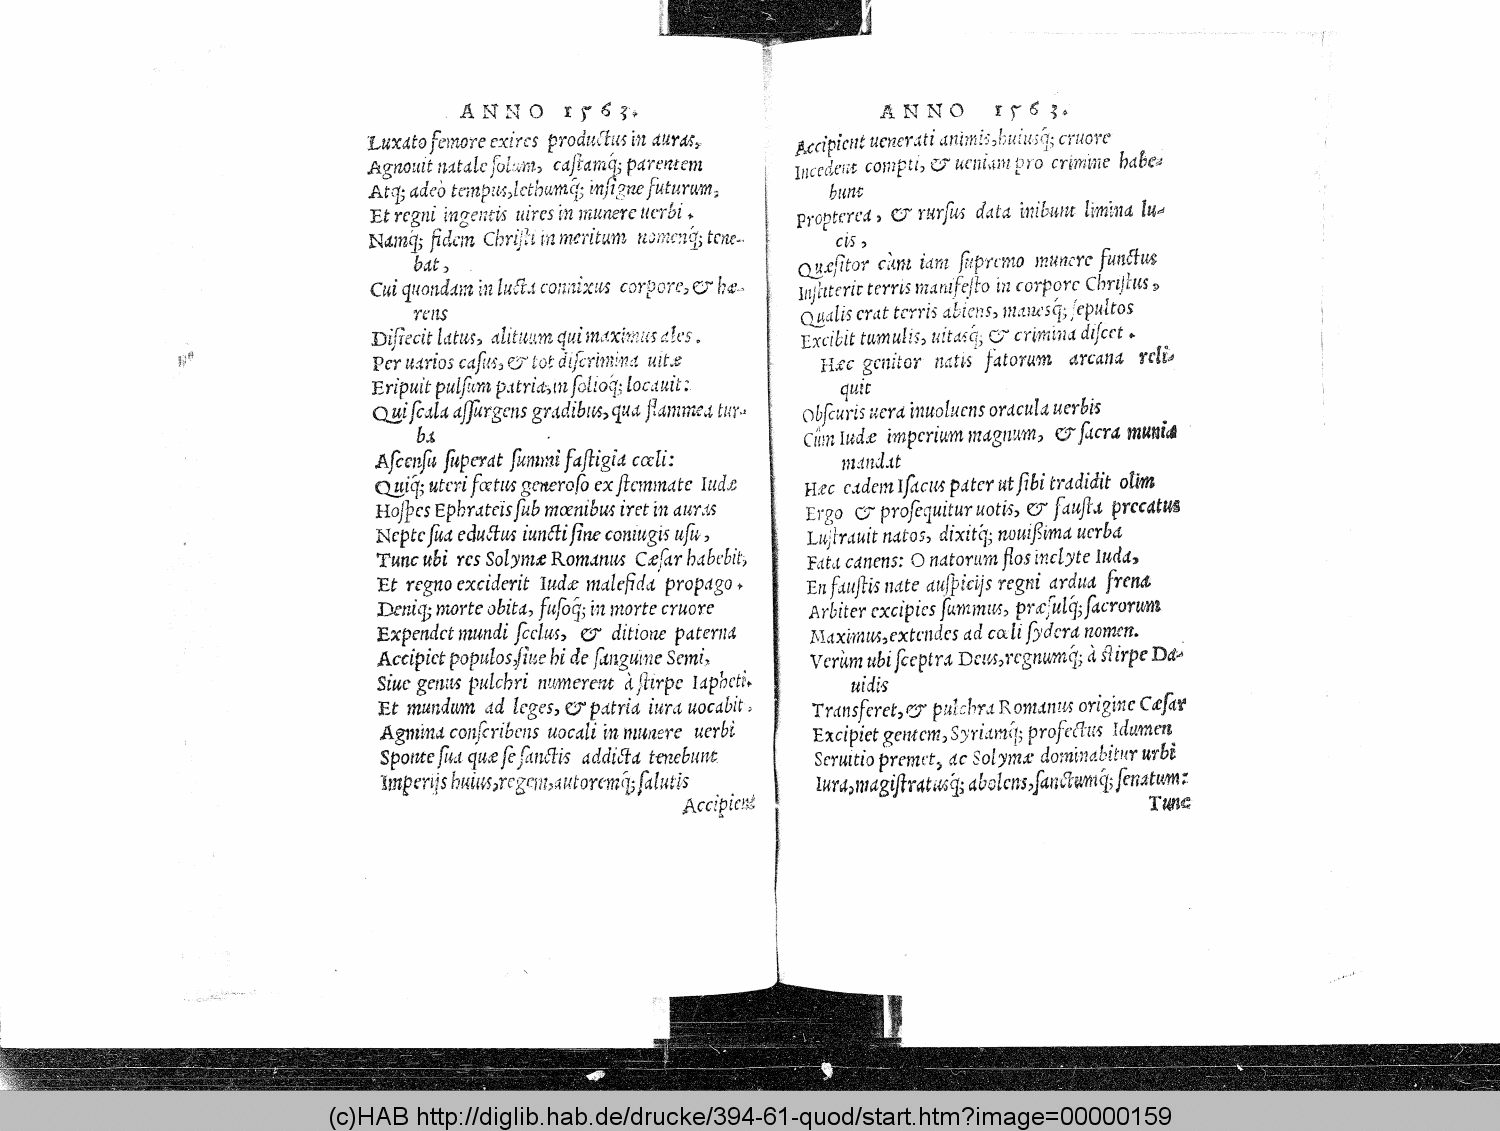 ANNO 1563.
Luxato femore exires productus in auras,
Agnouit natale solum, castamq́; parentem
Atq; adeò tempus, lethumq́; insigne futurum,
Et regni ingentis uires in munere uerbi.
Namq́; fidem Christi in meritum nomenq́; tene-
bat,
Cui quondam in lucta connixus corpore, & hæ-
rens
Disiecit latus, alituum qui maximus ales.
Per uarios casus, & tot discrimina uitæ
Eripuit pulsum patria, in solioq́; locauit:
Qui scala assurgens gradibus, qua flammea tur-
ba
Ascensu superat summi fastigia cœli:
Quiq́; uteri fœtus generoso ex stemmate Iudæ
Hospes Ephrateis sub mœnibus iret in auras
Nepte sua eductus iuncti sine coniugis usu,
Tunc ubi res Solymæ Romanus Cæsar habebit,
Et regno exciderit Iudæ malefida propago.
Deniq; morte obita, fusoq́; in morte cruore
Expendet mundi scelus, & ditione paterna
Accipiet populos, siue hi de sanguine Semi,
Siue genus pulchri numerent à stirpe Iapheti.
Et mundum ad leges, & patria iura uocabit,
Agmina conscribens uocali in munere uerbi
Sponte sua quæ se sanctis addicta tenebunt
Imperijs huius, regem, autoremq́; salutis
Accipient
ANNO 1563.
Accipient uenerati animis, huiusq́; cruore
Incedent compti, & ueniam pro crimine habe-
bunt
Propterea, & rursus data inibunt limina lu-
cis,
Quæsitor cùm iam supremo munere functus
Institerit terris manifesto in corpore Christus,
Qualis erat terris abiens, manesq́; sepultos
Excibit tumulis, uitasq́; & crimina discet.
Hæc genitor natis fatorum arcana reli-
quit
Obscuris uera inuoluens oracula uerbis
Cùm Iudæ imperium magnum, & sacra munia
mandat
Hæc eadem Isacus pater ut sibi tradidit olim
Ergo & prosequitur uotis, & fausta precatus
Lustrauit natos, dixitq́; nouißima uerba
Fata canens: O natorum flos inclyte Iuda,
En faustis nate auspicijs regni ardua frena
Arbiter excipies summus, præsulq́; sacrorum
Maximus, extendes ad cœli sydera nomen.
Verùm ubi sceptra Deus, regnumq́; à stirpe Da-
uidis
Transferet, & pulchra Romanus origine Cæsar
Excipiet gentem, Syriamq́; profectus Idumen
Seruitio premet, ac Solymæ dominabitur urbi
Iura, magistratusq́; abolens, sanctumq́; senatum:
Tunc
(c)HAB http://diglib.hab.de/drucke/394-61-quod/start.htm?image=00000159